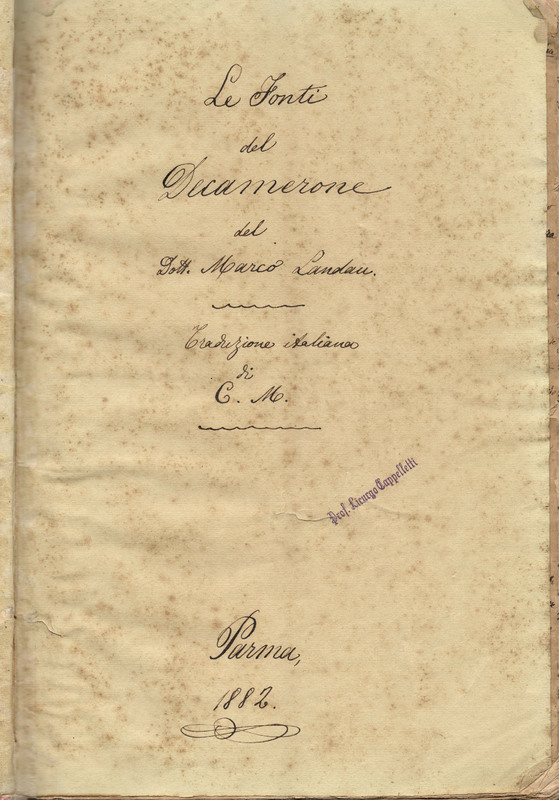 Le Fonti
del
Decamerone
del
Dott. Marco Landau.
Traduzione italiana
di
C. M.
Prof. Licurgo Cappelletti
Parma,
1882.